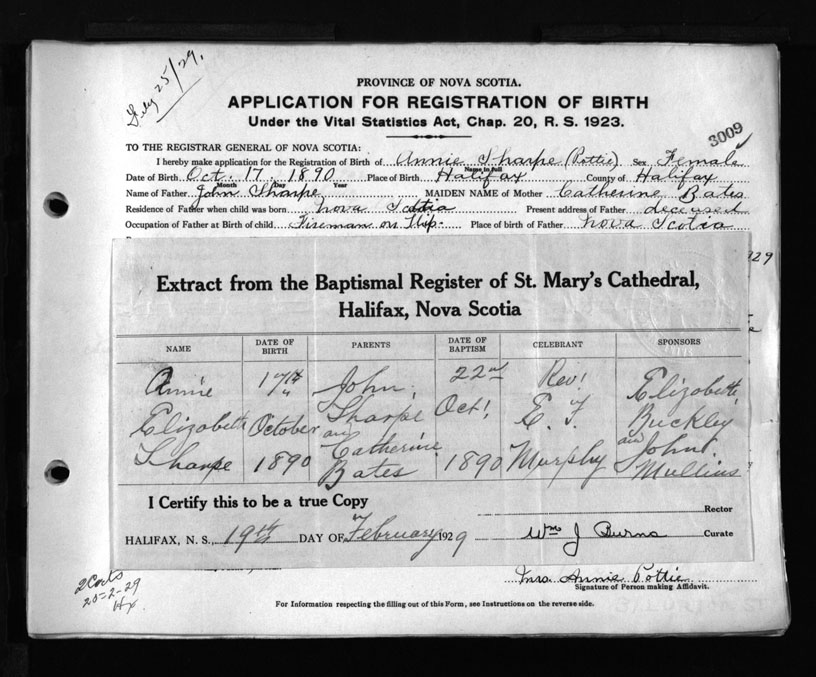 Feby 25/29.
PROVINCE OF NOVA SCOTIA.
APPLICATION FOR REGISTRATION OF BIRTH
Under the Vital Statistics Act, Chap. 20, R. S. 1923.
3009
TO THE REGISTRAR GENERAL OF NOVA SCOTIA:
I hereby make application for the Registration of Birth of Annie Sharpe (Pottie) Sex Female
Name in full
Date of Birth Oct. 17. 1890 Place of Birth Halifax County of Halifax
Month Day Year
Name of Father John Sharpe MAIDEN NAME of Mother Catherine Bates
Residence of Father when child was born Nova Scotia Present address of Father deceased
Occupation of Father at Birth of child Fireman on Ship. Place of birth of Father Nova Scotia
929
Extract from the Baptismal Register of St. Mary's Cathedral,
Halifax, Nova Scotia
NAME DATE OF BIRTH PARENTS DATE OF BAPTISM CELEBRANT SPONSORS
Annie 17th John 22nd Rev! Elizabeth
Elizabeth October Sharpe Oct! E. F. Buckley
Sharpe 1890 and Catherine Bates 1890 Murphy and John Mullins
I Certify this to be a true Copy
Rector
HALIFAX, N. S., 19th DAY OF February 1929 Wm J Burns Curate
2 Certs
25-2-29
Hfx.
Mrs. Annie Pottie
Signature of Person making Affidavit.
For Information respecting the filling out of this Form, see Instructions on the reverse side.